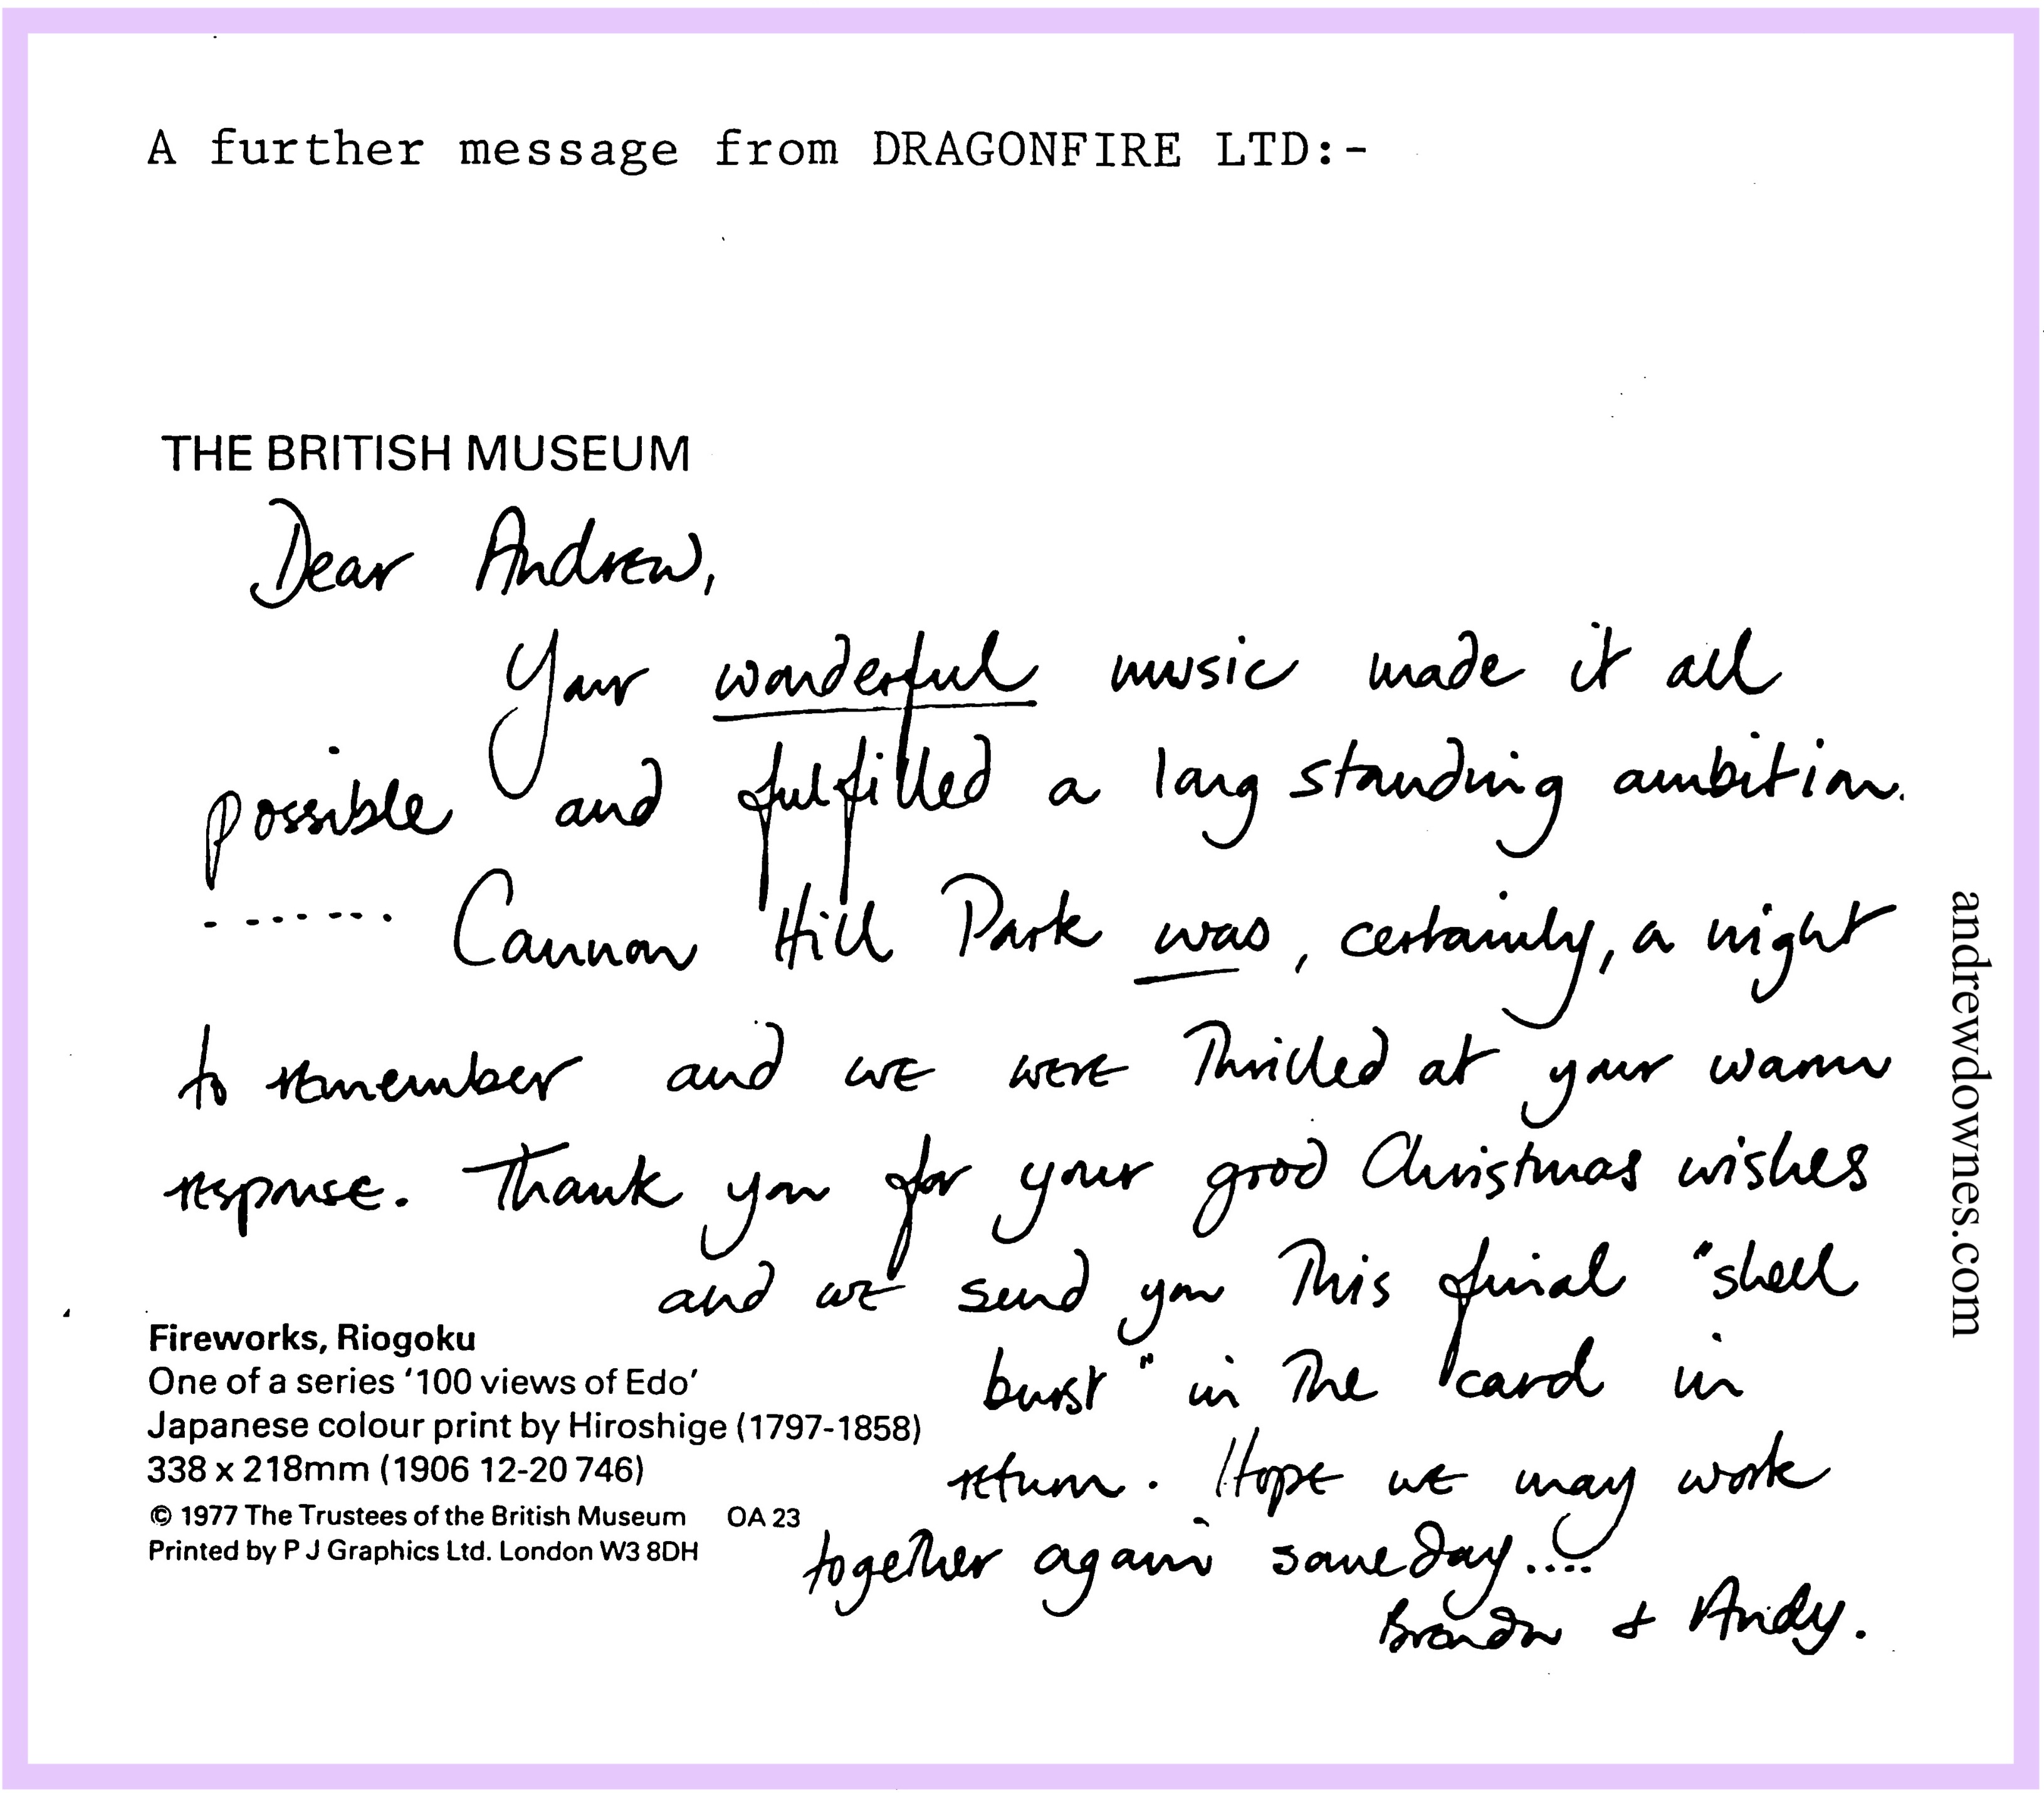 A further message from DRAGONFIRE LTD:-
THE BRITISH MUSEUM
Dear Andrew,
Your wonderful music made it all
possible and fulfilled a long standing ambition.
....... Cannon Hill Park was, certainly, a night
to remember and we were Thrilled at your warm
response. Thank you for your good Christmas wishes
and we send you This final "shell
burst" in The card in
return. Hope we may work
together again someday....
& Andy.
Fireworks, Riogoku
One of a series '100 views of Edo'
Japanese colour print by Hiroshige (1797-1858)
338 x 218mm (1906 12-20 746)
© 1977 The Trustees of the British Museum OA 23
Printed by P J Graphics Ltd. London W3 8DH
andrewdownes.com